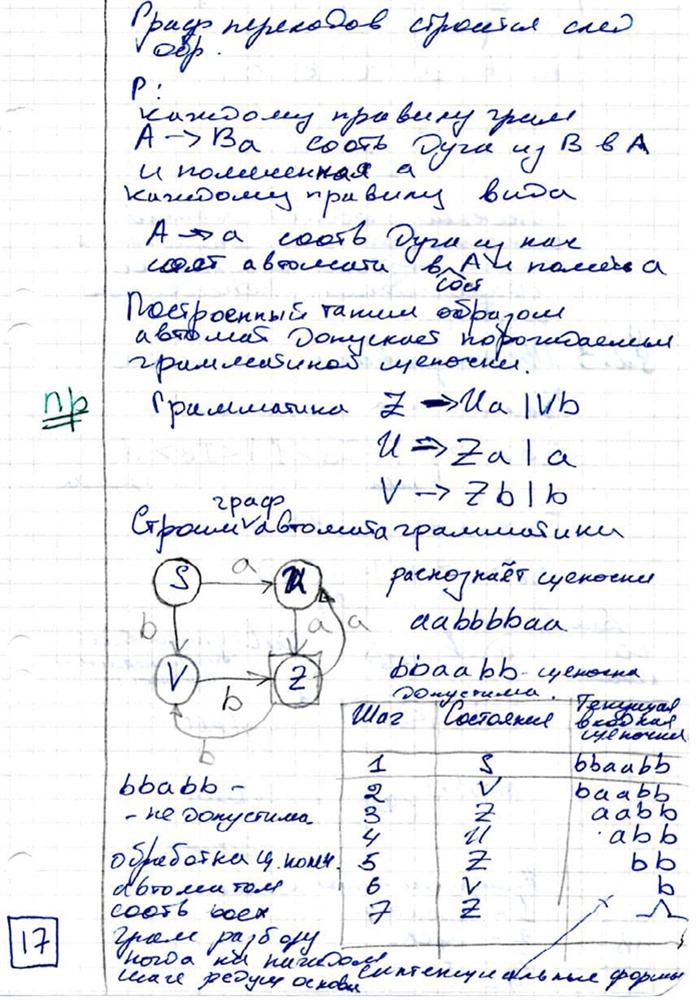 Граф переходов строится след
обр.
P:
каждому правилу грам
A → Ba соотв дуга из B в A
и помеченная a
каждому правилу вида
A → a соотв дуга из нач
сост автомата в A и помеч a
сост
Построенный таким образом
автомат допускает порождаемые
грамматикой цепочки.
пр
Грамматика Z → Ua | Vb
U → Za | a
V → Zb | b
граф
Строим автомата грамматики
S a U
b a a
V b Z
b
распознаёт цепочки
aabbbbaa
bbaabb - цепочка
допустима.
Шаг Состояния Текущая входная цепочка
1 S bbaabb
2 V baabb
3 Z aabb
4 U abb
5 Z bb
6 V b
7 Z Λ
bbabb -
- не допустима
обработка ц. конч.
автоматом
соотв восх
грам разбору
когда на каждом
шаге редуц основа
Сентенциальные формы
17